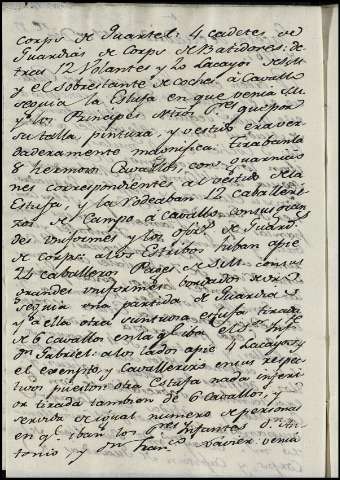 corps de Quartel: 4 cadetes de
Guardias de Corps de Batidores: de
tras 12 Volantes y 20 Lacayos de SSMM
y el sobrestante de coches à Cavallo
seguia la Estufa en que venia SM
y los Principes Ntros Sres que por
su talla, pintura, y vestido era ver
daderamente magnifica: tirabanla
8 hermosos Cavallos, con guarnicio
nes correspondientes al vestido de la
Estufa, y la Rodeaban 12 caballeri
zos de Campo à cavallo con sus gran
des uniformes y los ofiz.s de Guard.s
de Corps: a los Estribos hiban apie
24 caballeros Pages de SM. con sus
grandes uniformes bordados de oro
seguia una partida de Guardias
y a ella otra suntuosa estufa tirada
de 6 cavallos en la q.l iba el S.or Inf.
Dn Gabriel: a los lados apie 4 Lacayos y
el exempto, y Cavallerizo en sus respec
tivos puestos otra Estufa nada inferi
or tirada tambien de 6 Cavallos, y
servida de igual numero de personas
en q.e iban los S.res Infantes D.n An
tonio y D.n Fran.co Xavier: venia